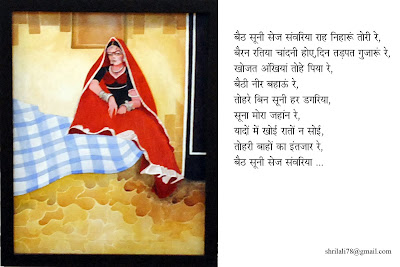 बैठ सूनी सेज संवरिया राह निहारूं तोरी रे,
बैरन रतिया चांदनी होए,दिन तड़पत गुजारूं रे,
खोजत अँखियां तोहे पिया रे,
बैठी नीर बहाऊं रे,
तोहरे बिन सूनी हर डगरिया,
सूना मोरा जहांन रे,
यादों में खोई रातों न सोई,
तोहरी बाहों का इंतजार रे,
बैठ सूनी सेज संवरिया ...
shrilali78@gmail.com